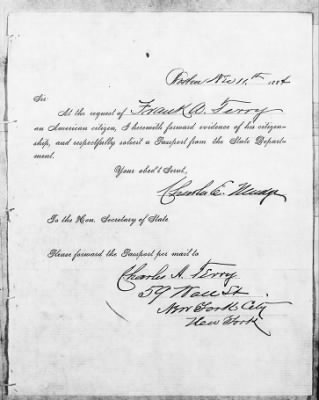 Boston Nov 11th 1884
Sir
At the request of Frank A. Terry
an American citizen, I herewith forward evidence of his citizen-
ship, and respectfully solicit a Passport from the State Depart-
ment.
Your obed't Servt,
Charles E.
To the Hon. Secretary of State.
Please forward the Passport per mail to
Charles A. Terry
59 Wall St.
New York City
New York